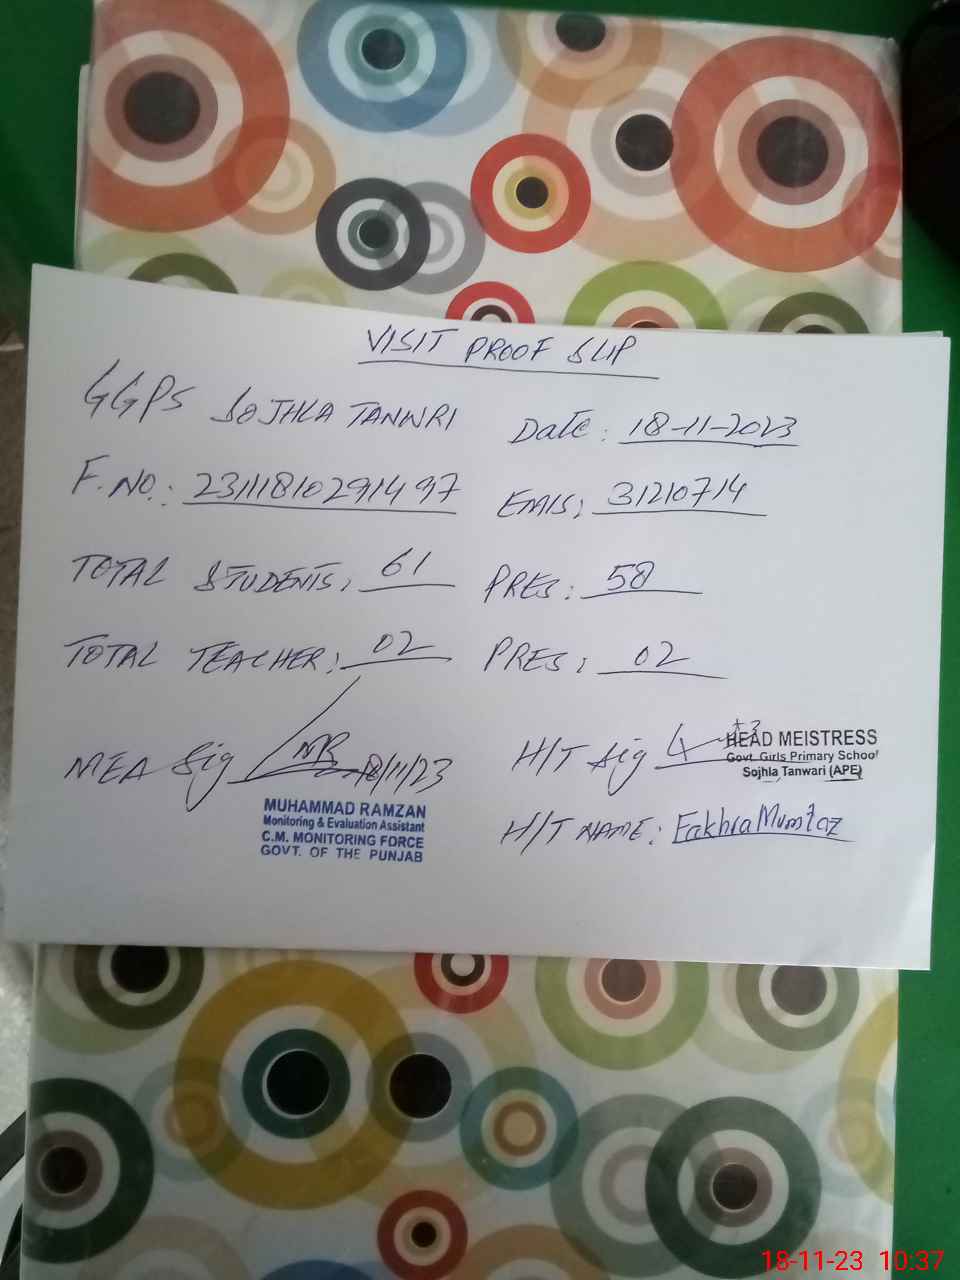 VISIT PROOF SLIP
GGPS SOJHLA TANWRI Date: 18-11-2023
F.NO.: 23111810291497 EMIS: 31210714
TOTAL STUDENTS: 61 PRES: 58
TOTAL TEACHER: 02 PRES: 02
MEA Sig MR 18/11/23 H/T Sig
HEAD MEISTRESS
Govt. Girls Primary School
Sojhla Tanwari (APE)
MUHAMMAD RAMZAN
Monitoring & Evaluation Assistant
C.M. MONITORING FORCE
GOVT. OF THE PUNJAB
H/T NAME: Fakhra Mumtaz
18-11-23 10:37